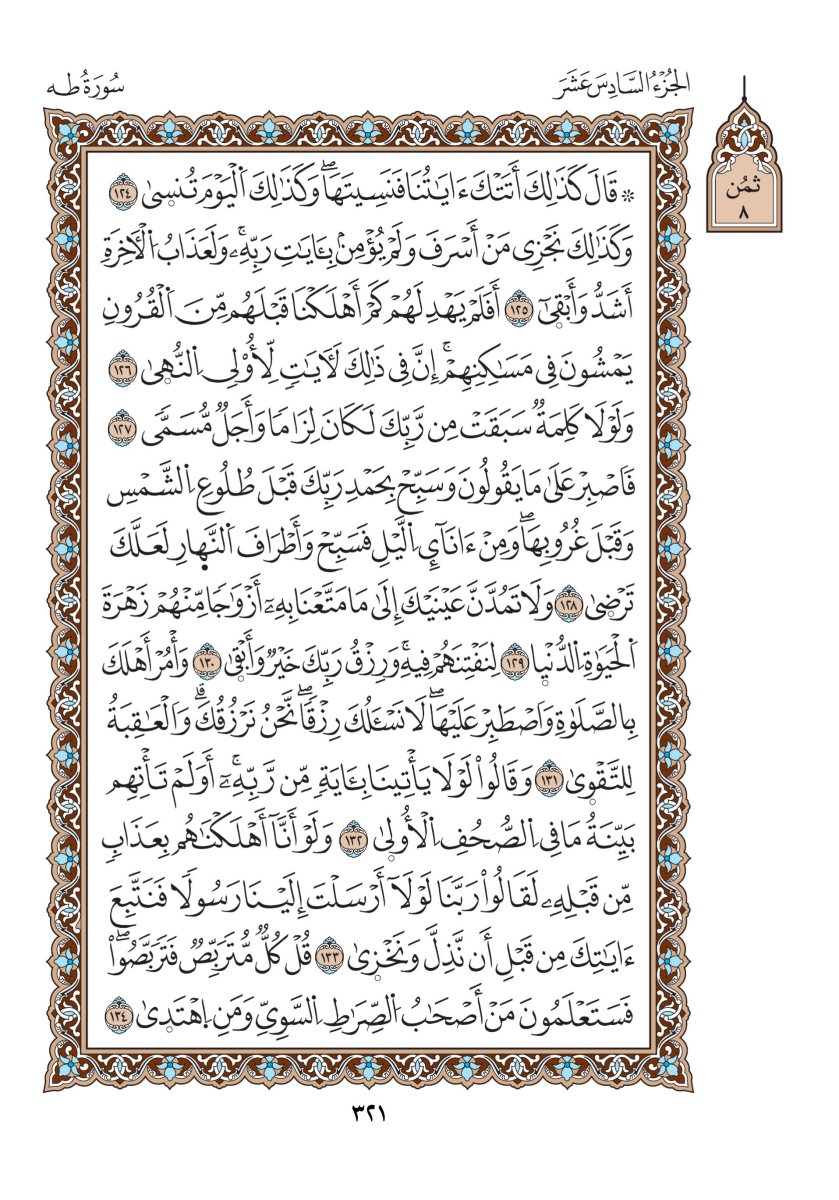 الجُزْءُ السَّادِسَ عَشَرَ
سُورَةُ طه
ثُمُن
٨
۞ قَالَ كَذَٰلِكَ أَتَتْكَ ءَايَٰتُنَا فَنَسِيتَهَاۖ وَكَذَٰلِكَ اَلْيَوْمَ تُنسَىٰ ١٢٤
وَكَذَٰلِكَ نَجْزِى مَنْ أَسْرَفَ وَلَمْ يُؤْمِنۢ بِـَٔايَٰتِ رَبِّهِۦۚ وَلَعَذَابُ اُلْأٓخِرَةِ
أَشَدُّ وَأَبْقَىٰٓ ١٢٥ أَفَلَمْ يَهْدِ لَهُمْ كَمْ أَهْلَكْنَا قَبْلَهُم مِّنَ اَلْقُرُونِ
يَمْشُونَ فِى مَسَٰكِنِهِمْۚ إِنَّ فِى ذَٰلِكَ لَأٓيَٰتٍ لِّأُوْلِى اِلنُّهَىٰ ١٢٦
وَلَوْلَا كَلِمَةٌ سَبَقَتْ مِن رَّبِّكَ لَكَانَ لِزَامًا وَأَجَلٌ مُّسَمًّى ١٢٧
فَاصْبِرْ عَلَىٰ مَا يَقُولُونَ وَسَبِّحْ بِحَمْدِ رَبِّكَ قَبْلَ طُلُوعِ اِلشَّمْسِ
وَقَبْلَ غُرُوبِهَاۖ وَمِنْ ءَانَآيِٕ اِلَّيْلِ فَسَبِّحْ وَأَطْرَافَ اَلنَّهارِ لَعَلَّكَ
تَرْضَىٰ ١٢٨ وَلَا تَمُدَّنَّ عَيْنَيْكَ إِلَىٰ مَا مَتَّعْنَا بِهِۦٓ أَزْوَٰجًا مِّنْهُمْ زَهْرَةَ
اَلْحَيَوٰةِ اِلدُّنْيَا ١٢٩ لِنَفْتِنَهُمْ فِيهِۚ وَرِزْقُ رَبِّكَ خَيْرٌ وَأَبْقَىٰ ١٣٠ وَأْمُرْ أَهْلَكَ
بِالصَّلَوٰةِ وَاصْطَبِرْ عَلَيْهَاۖ لَا نَسْـَٔلُكَ رِزْقًاۖ نَّحْنُ نَرْزُقُكَۗ وَالْعَٰقِبَةُ
لِلتَّقْوَىٰ ١٣١ وَقَالُواْ لَوْلَا يَأْتِينَا بِـَٔايَةٍ مِّن رَّبِّهِۦٓۚ أَوَلَمْ تَأْتِهِم
بَيِّنَةُ مَا فِى اِلصُّحُفِ اِلْأُولَىٰ ١٣٢ وَلَوْ أَنَّآ أَهْلَكْنَٰهُم بِعَذَابٍ
مِّن قَبْلِهِۦ لَقَالُواْ رَبَّنَا لَوْلَآ أَرْسَلْتَ إِلَيْنَا رَسُولًا فَنَتَّبِعَ
ءَايَٰتِكَ مِن قَبْلِ أَن نَّذِلَّ وَنَخْزَىٰ ١٣٣ قُلْ كُلٌّ مُّتَرَبِّصٌ فَتَرَبَّصُواْۖ
فَسَتَعْلَمُونَ مَنْ أَصْحَٰبُ اُلصِّرَٰطِ اِلسَّوِىِّ وَمَنِ اِهْتَدَىٰ ١٣٤
٣٢١